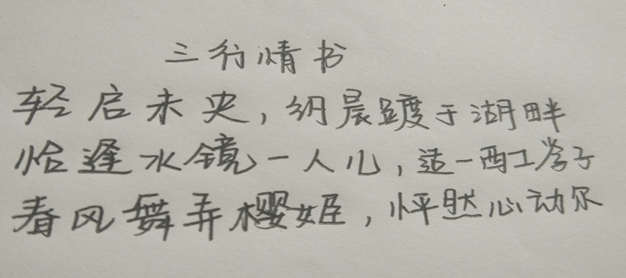 三行情书
轻启未央，翊晨踱于湖畔
恰逢水镜一人儿，适一西工学子
春风舞弄樱姬，怦然心动尔